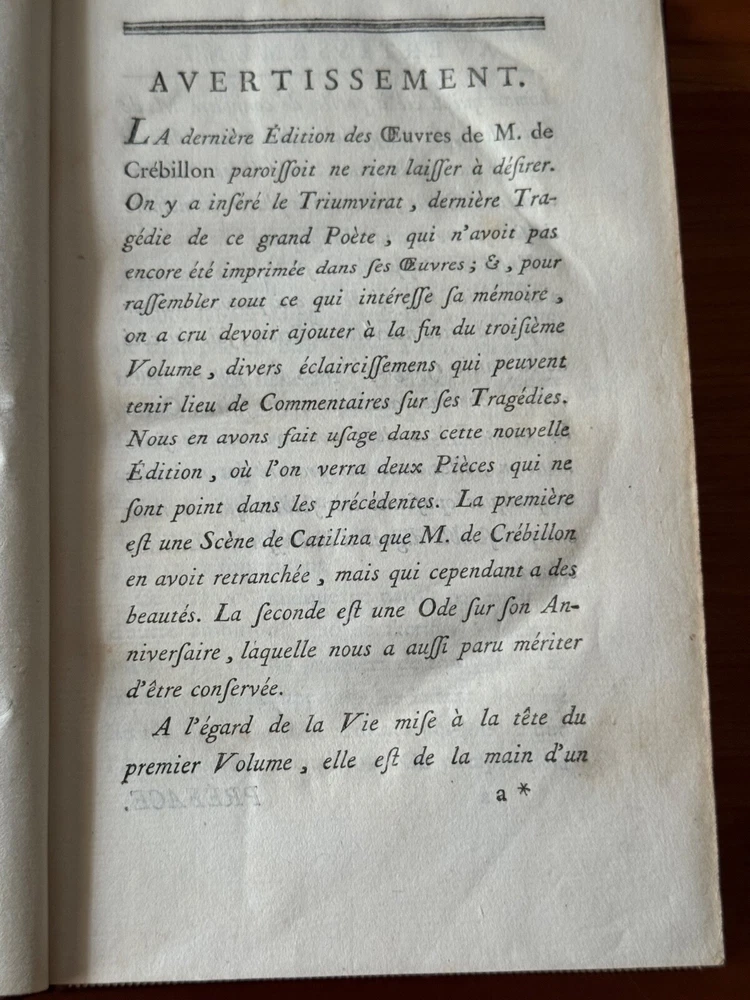 AVERTISSEMENT.
LA dernière Édition des Œuvres de M. de
Crébillon paroiſſoit ne rien laiſſer à déſirer.
On y a inſéré le Triumvirat, dernière Tra-
gédie de ce grand Poète, qui n'avoit pas
encore été imprimée dans ſes Œuvres; &, pour
raſſembler tout ce qui intéreſſe ſa mémoire,
on a cru devoir ajouter à la fin du troiſième
Volume, divers éclairciſſemens qui peuvent
tenir lieu de Commentaires ſur ſes Tragédies.
Nous en avons fait uſage dans cette nouvelle
Édition, où l'on verra deux Pièces qui ne
ſont point dans les précédentes. La première
eſt une Scène de Catilina que M. de Crébillon
en avoit retranchée, mais qui cependant a des
beautés. La ſeconde eſt une Ode ſur ſon An-
niverſaire, laquelle nous a auſſi paru mériter
d'être conſervée.
A l'égard de la Vie miſe à la tête du
premier Volume, elle eſt de la main d'un
a *
PRÉFACE.